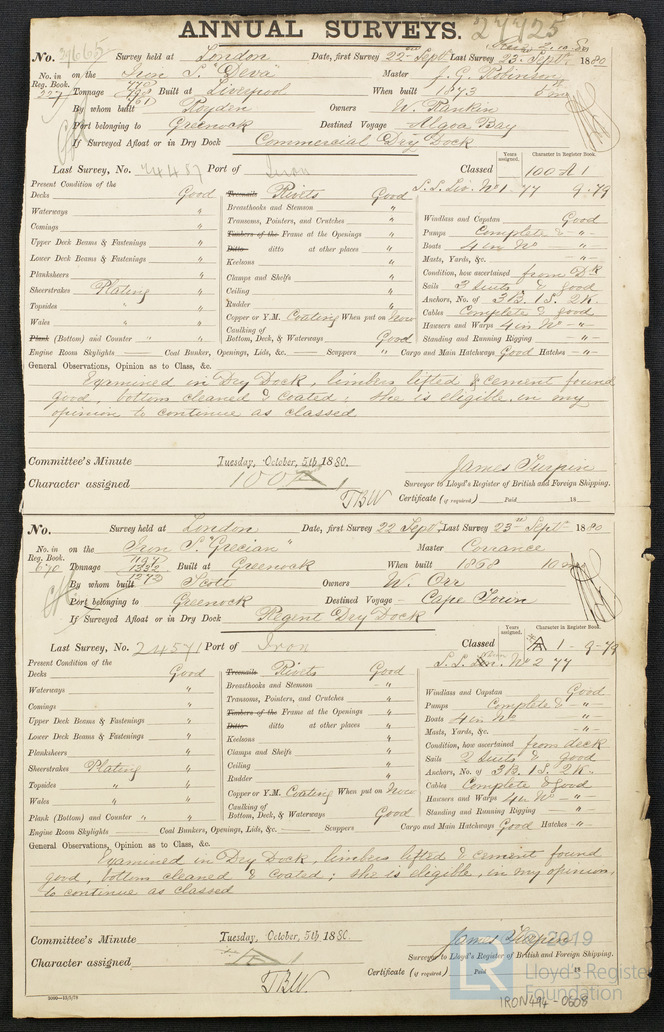 ANNUAL SURVEYS. 27725
No. Survey held at London Date, first Survey 22nd Sept. Last Survey 23. Sept. 1880
No. in on the Iron S. "Deva" Master J. G. Robinson
Reg. Book. 227 Tonnage 761 Built at Liverpool When built 1873 5 mo
By whom built Royden Owners W. Rankin
Port belonging to Greenock Destined Voyage Algoa Bay
If Surveyed Afloat or in Dry Dock Commercial Dry Dock
Years assigned. Character in Register Book.
Last Survey, No. 24457 Port of Iron Classed 100 A 1
S.S. Liv. No 1 - 77 9 - 79
Present Condition of the
Decks Good Treenails Rivits Good
Waterways " Breasthooks and Stemson " Windlass and Capstan Good
Comings " Transoms, Pointers, and Crutches " Pumps Complete & - " -
Upper Deck Beams & Fastenings " Timbers of the Frame at the Openings " Boats 4 in No - " -
Lower Deck Beams & Fastenings " Ditto ditto at other places " Masts, Yards, &c. - " -
Planksheers " Keelsons " Condition, how ascertained from Dk
Sheerstrakes Plating " Clamps and Shelfs " Sails 3 suits & good
Topsides " " Ceiling " Anchors, No. of 3B. 1S. 2K.
Wales " " Rudder " Cables Complete & good
Copper or Y.M. Coating When put on Now Hawsers and Warps 4 in No - " -
Plank (Bottom) and Counter " " Caulking of Bottom, Deck, & Waterways Good Standing and Running Rigging - " -
Engine Room Skylights Coal Bunker, Openings, Lids, &c. Scuppers " Cargo and Main Hatchways Good Hatches - " -
General Observations, Opinion as to Class, &c.
Examined in Dry Dock, limbers lifted & cement found
good, bottom cleaned & coated; she is eligible in my
opinion to continue as classed
Committee's Minute Tuesday, October, 5th 1880.
Character assigned 100 A 1 James Turpin
TBW Surveyor to Lloyd's Register of British and Foreign Shipping.
Certificate (if required) Paid 18
No. Survey held at London Date, first Survey 22 Sept. Last Survey 23rd Sept. 1880
No. in on the Iron S. "Grecian" Master Corrance
Reg. Book. 670 Tonnage 1272 Built at Greenock When built 1868 10 mo
By whom built Scott Owners W. Orr
Port belonging to Greenock Destined Voyage Cape Town
If Surveyed Afloat or in Dry Dock Regent Dry Dock
Years assigned. Character in Register Book.
Last Survey, No. 24571 Port of Iron Classed A 1 - 9-79
S.S. No 2 77
Present Condition of the
Decks Good Treenails Rivits Good
Waterways " Breasthooks and Stemson - " Windlass and Capstan Good
Comings " Transoms, Pointers, and Crutches " Pumps Complete & - " -
Upper Deck Beams & Fastenings " Timbers of the Frame at the Openings " Boats 4 in No - " -
Lower Deck Beams & Fastenings " Ditto ditto at other places " Masts, Yards, &c. - " -
Planksheers " Keelsons " Condition, how ascertained from deck
Sheerstrakes Plating " Clamps and Shelfs " Sails 2 suits & good
Topsides " " Ceiling " Anchors, No. of 3B. 1S. 2K.
Wales " " Rudder " Cables Complete & good
Copper or Y.M. Coating When put on Now Hawsers and Warps 4 in No - " -
Plank (Bottom) and Counter " " Caulking of Bottom, Deck, & Waterways Good Standing and Running Rigging - " -
Engine Room Skylights Coal Bunkers, Openings, Lids, &c. Scuppers Cargo and Main Hatchways Good Hatches - " -
General Observations, Opinion as to Class, &c.
Examined in Dry Dock, limbers lifted & cement found
good, bottom cleaned & coated; she is eligible, in my opinion,
to continue as classed
Committee's Minute Tuesday, October, 5th 1880.
Character assigned A 1 James Turpin
TBW Surveyor to Lloyd's Register of British and Foreign Shipping.
Certificate (if required) Paid 18
© 2019
LR Lloyd's Register
Foundation
IRON494-0608